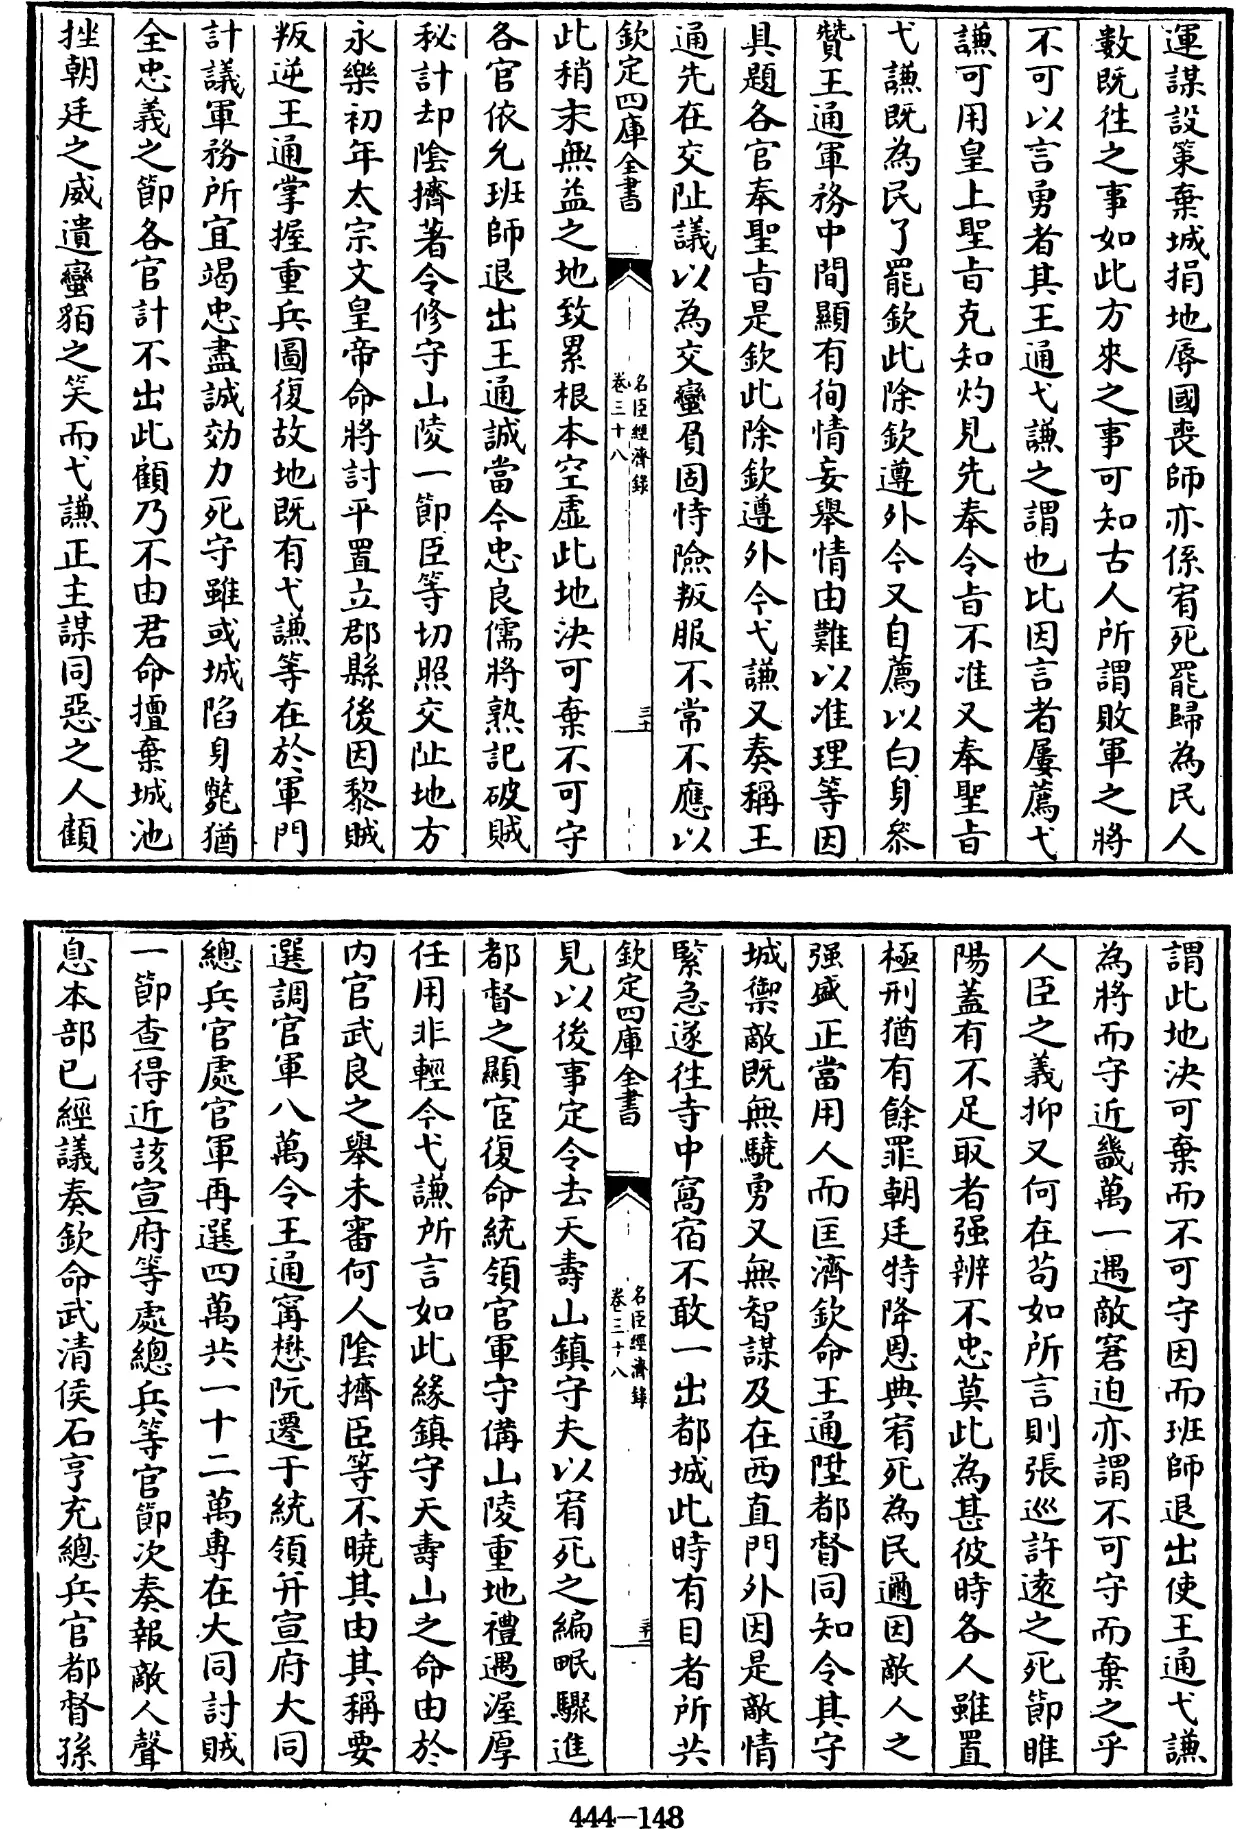 運謀設策棄城捐地辱國喪師亦係宥死罷歸為民人
數既往之事如此方來之事可知古人所謂敗軍之將
不可以言勇者其王通弋謙之謂也比因言者屢薦弋
謙可用皇上聖旨克知灼見先奉令旨不准又奉聖旨
弋謙既為民了罷欽此除欽遵外今又自薦以白身叅
贊王通軍務中間顯有徇情妄舉情由難以准理等因
具題各官奉聖旨是欽此除欽遵外今弋謙又奏稱王
通先在交阯議以為交蠻負固恃險叛服不常不應以
欽定四庫全書
名臣經濟錄
卷三十八
三十
此稍末無益之地致累根本空虛此地決可棄不可守
各官依允班師退出王通誠當今忠良儒將熟記破賊
秘計却陰擠著令修守山陵一節臣等切照交阯地方
永樂初年太宗文皇帝命將討平置立郡縣後因黎賊
叛逆王通掌握重兵圖復故地既有弋謙等在於軍門
計議軍務所宜竭忠盡誠効力死守雖或城陷身斃猶
全忠義之節各官計不出此顧乃不由君命擅棄城池
挫朝廷之威遺蠻貊之笑而弋謙正主謀同惡之人顧
謂此地決可棄而不可守因而班師退出使王通弋謙
為將而守近畿萬一遇敵窘迫亦謂不可守而棄之乎
人臣之義抑又何在苟如所言則張巡許遠之死節睢
陽蓋有不足取者强辨不忠莫此為甚彼時各人雖置
極刑猶有餘罪朝廷特降恩典宥死為民邇因敵人之
强盛正當用人而匡濟欽命王通陞都督同知令其守
城禦敵既無驍勇又無智謀及在西直門外因是敵情
緊急遂往寺中窩宿不敢一出都城此時有目者所共
欽定四庫全書
名臣經濟錄
卷三十八
見以後事定令去天壽山鎮守夫以宥死之編氓驟進
都督之顯宦復命統領官軍守備山陵重地禮遇渥厚
任用非輕今弋謙所言如此緣鎮守天壽山之命由於
内官武良之舉未審何人陰擠臣等不曉其由其稱要
選調官軍八萬令王通寗懋阮遷于統領并宣府大同
總兵官處官軍再選四萬共一十二萬專在大同討賊
一節查得近該宣府等處總兵等官節次奏報敵人聲
息本部已經議奏欽命武清侯石亨充總兵官都督孫
444-148